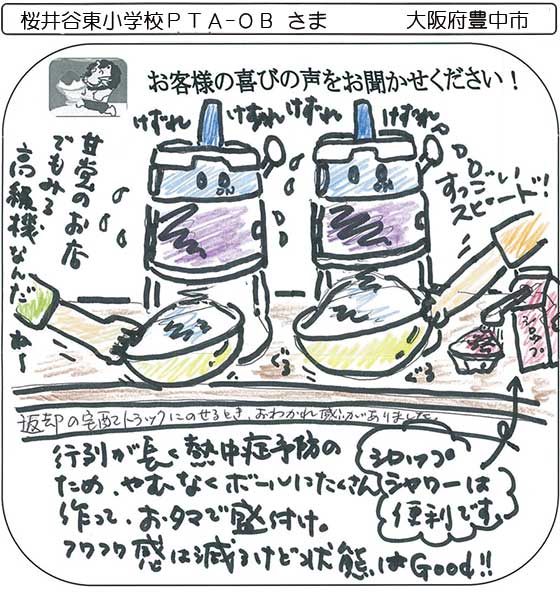 桜井谷東小学校PTA-OB さま 大阪府豊中市
お客様の喜びの声をお聞かせください！
けずれ けずれ けずれ けずれ
甘党のお店
でもみる
高級機なんだねー
すっごい
スピード！
シロップ
ぐる ぐる
返却の宅配トラックにのせるとき、おわかれ感がありました。
行列が長く熱中症予防の
ため、やむなくボールにたくさん
作って、おタマで盛付け。
フワフワ感は減るけど状態はGood!!
シロップ
シャワーは
便利です